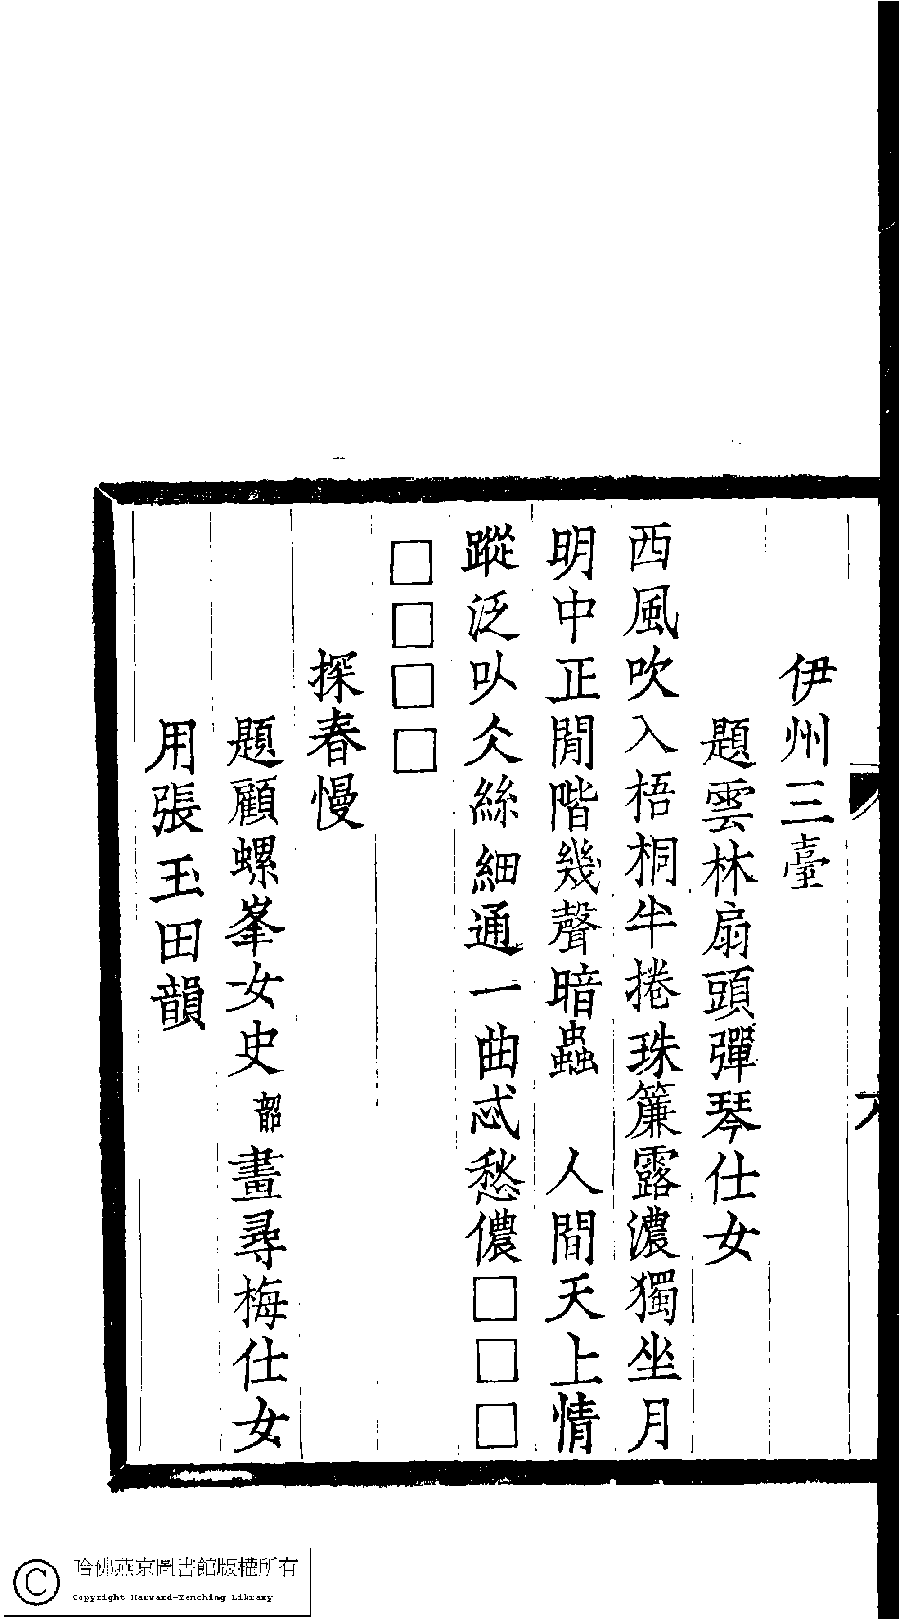 伊州三臺
題雲林扇頭彈琴仕女
西風吹入梧桐半捲珠簾露濃獨坐月
明中正閒階幾聲暗蟲　人間天上情
蹤泛㕥仌絲細通一曲忒愁儂□□□
□□□□
探春慢
題顧螺峯女史韶畫尋梅仕女
用張玉田韻
哈佛燕京圖書館版權所有
Copyright Harvard-Yenching Library